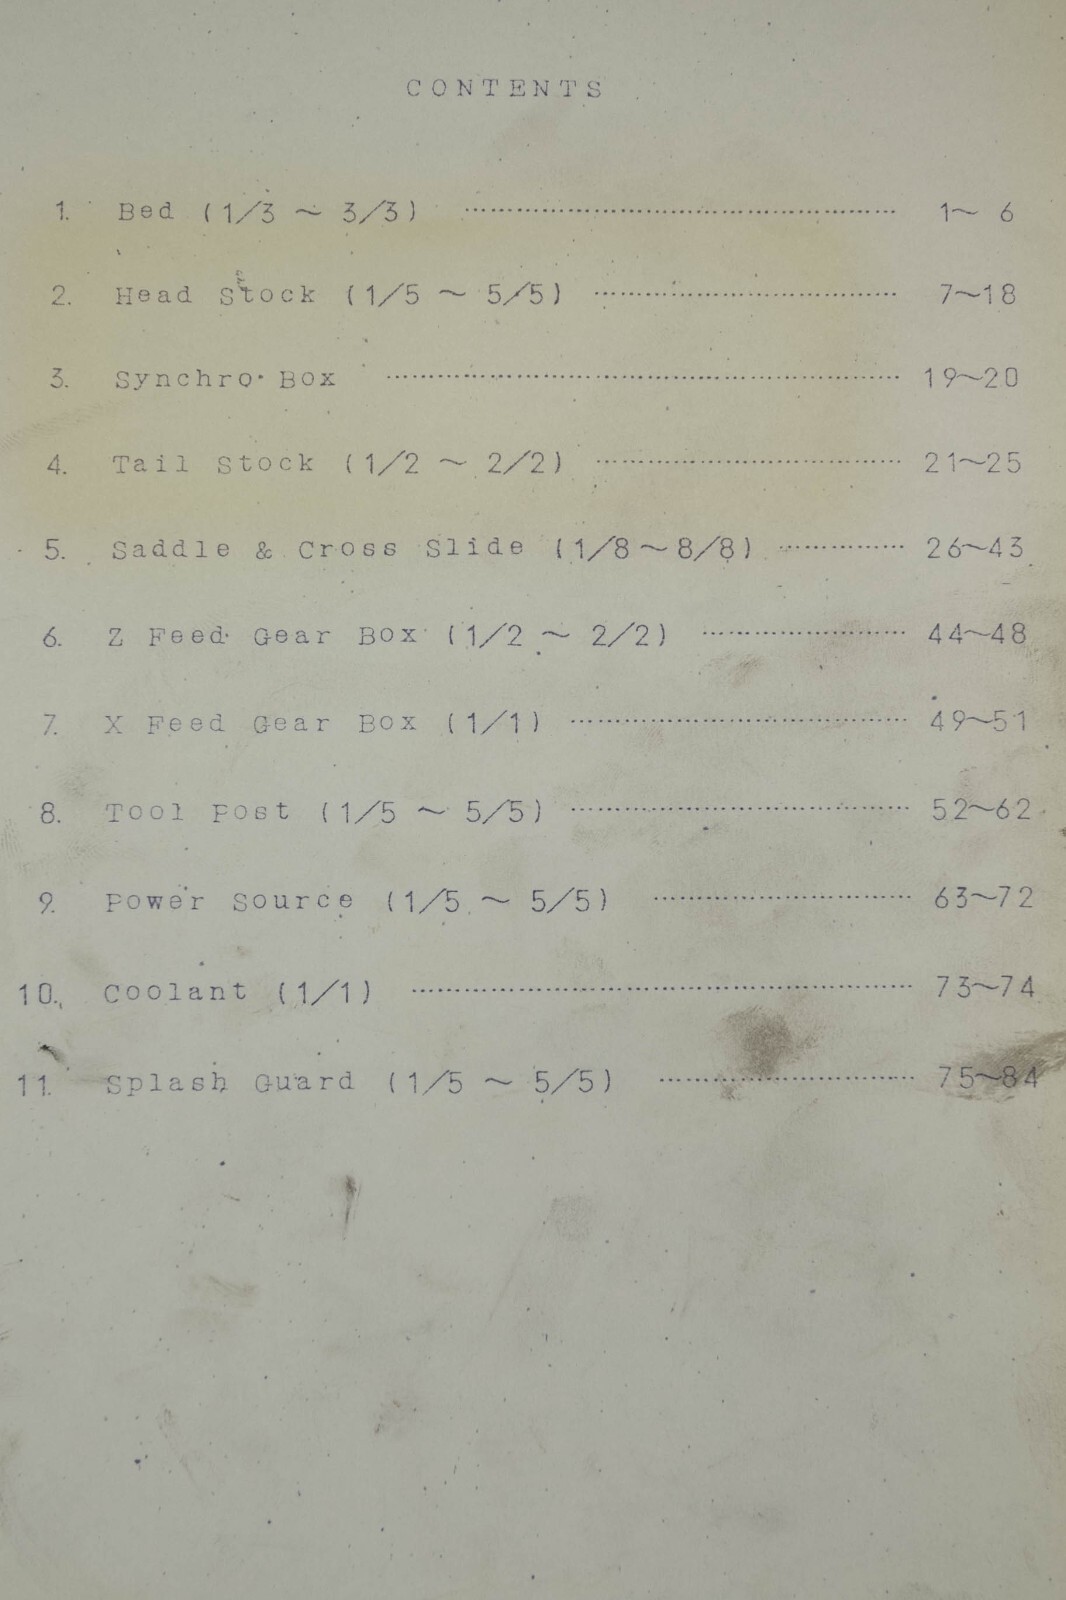 CONTENTS
1. Bed (1/3 ~ 3/3) ........................ 1~ 6
2. Head Stock (1/5 ~ 5/5) ........................ 7~18
3. Synchro Box ........................ 19~20
4. Tail Stock (1/2 ~ 2/2) ........................ 21~25
5. Saddle & Cross Slide (1/8 ~ 8/8) ........................ 26~43
6. Z Feed Gear Box (1/2 ~ 2/2) ........................ 44~48
7. X Feed Gear Box (1/1) ........................ 49~51
8. Tool Post (1/5 ~ 5/5) ........................ 52~62
9. Power Source (1/5 ~ 5/5) ........................ 63~72
10. Coolant (1/1) ........................ 73~74
11. Splash Guard (1/5 ~ 5/5) ........................ 75~84